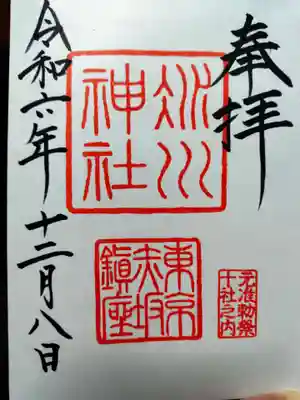 奉拝
氷川
神社
東京
赤坂
鎮座
元准勅祭
十社之内
令和六年十二月八日